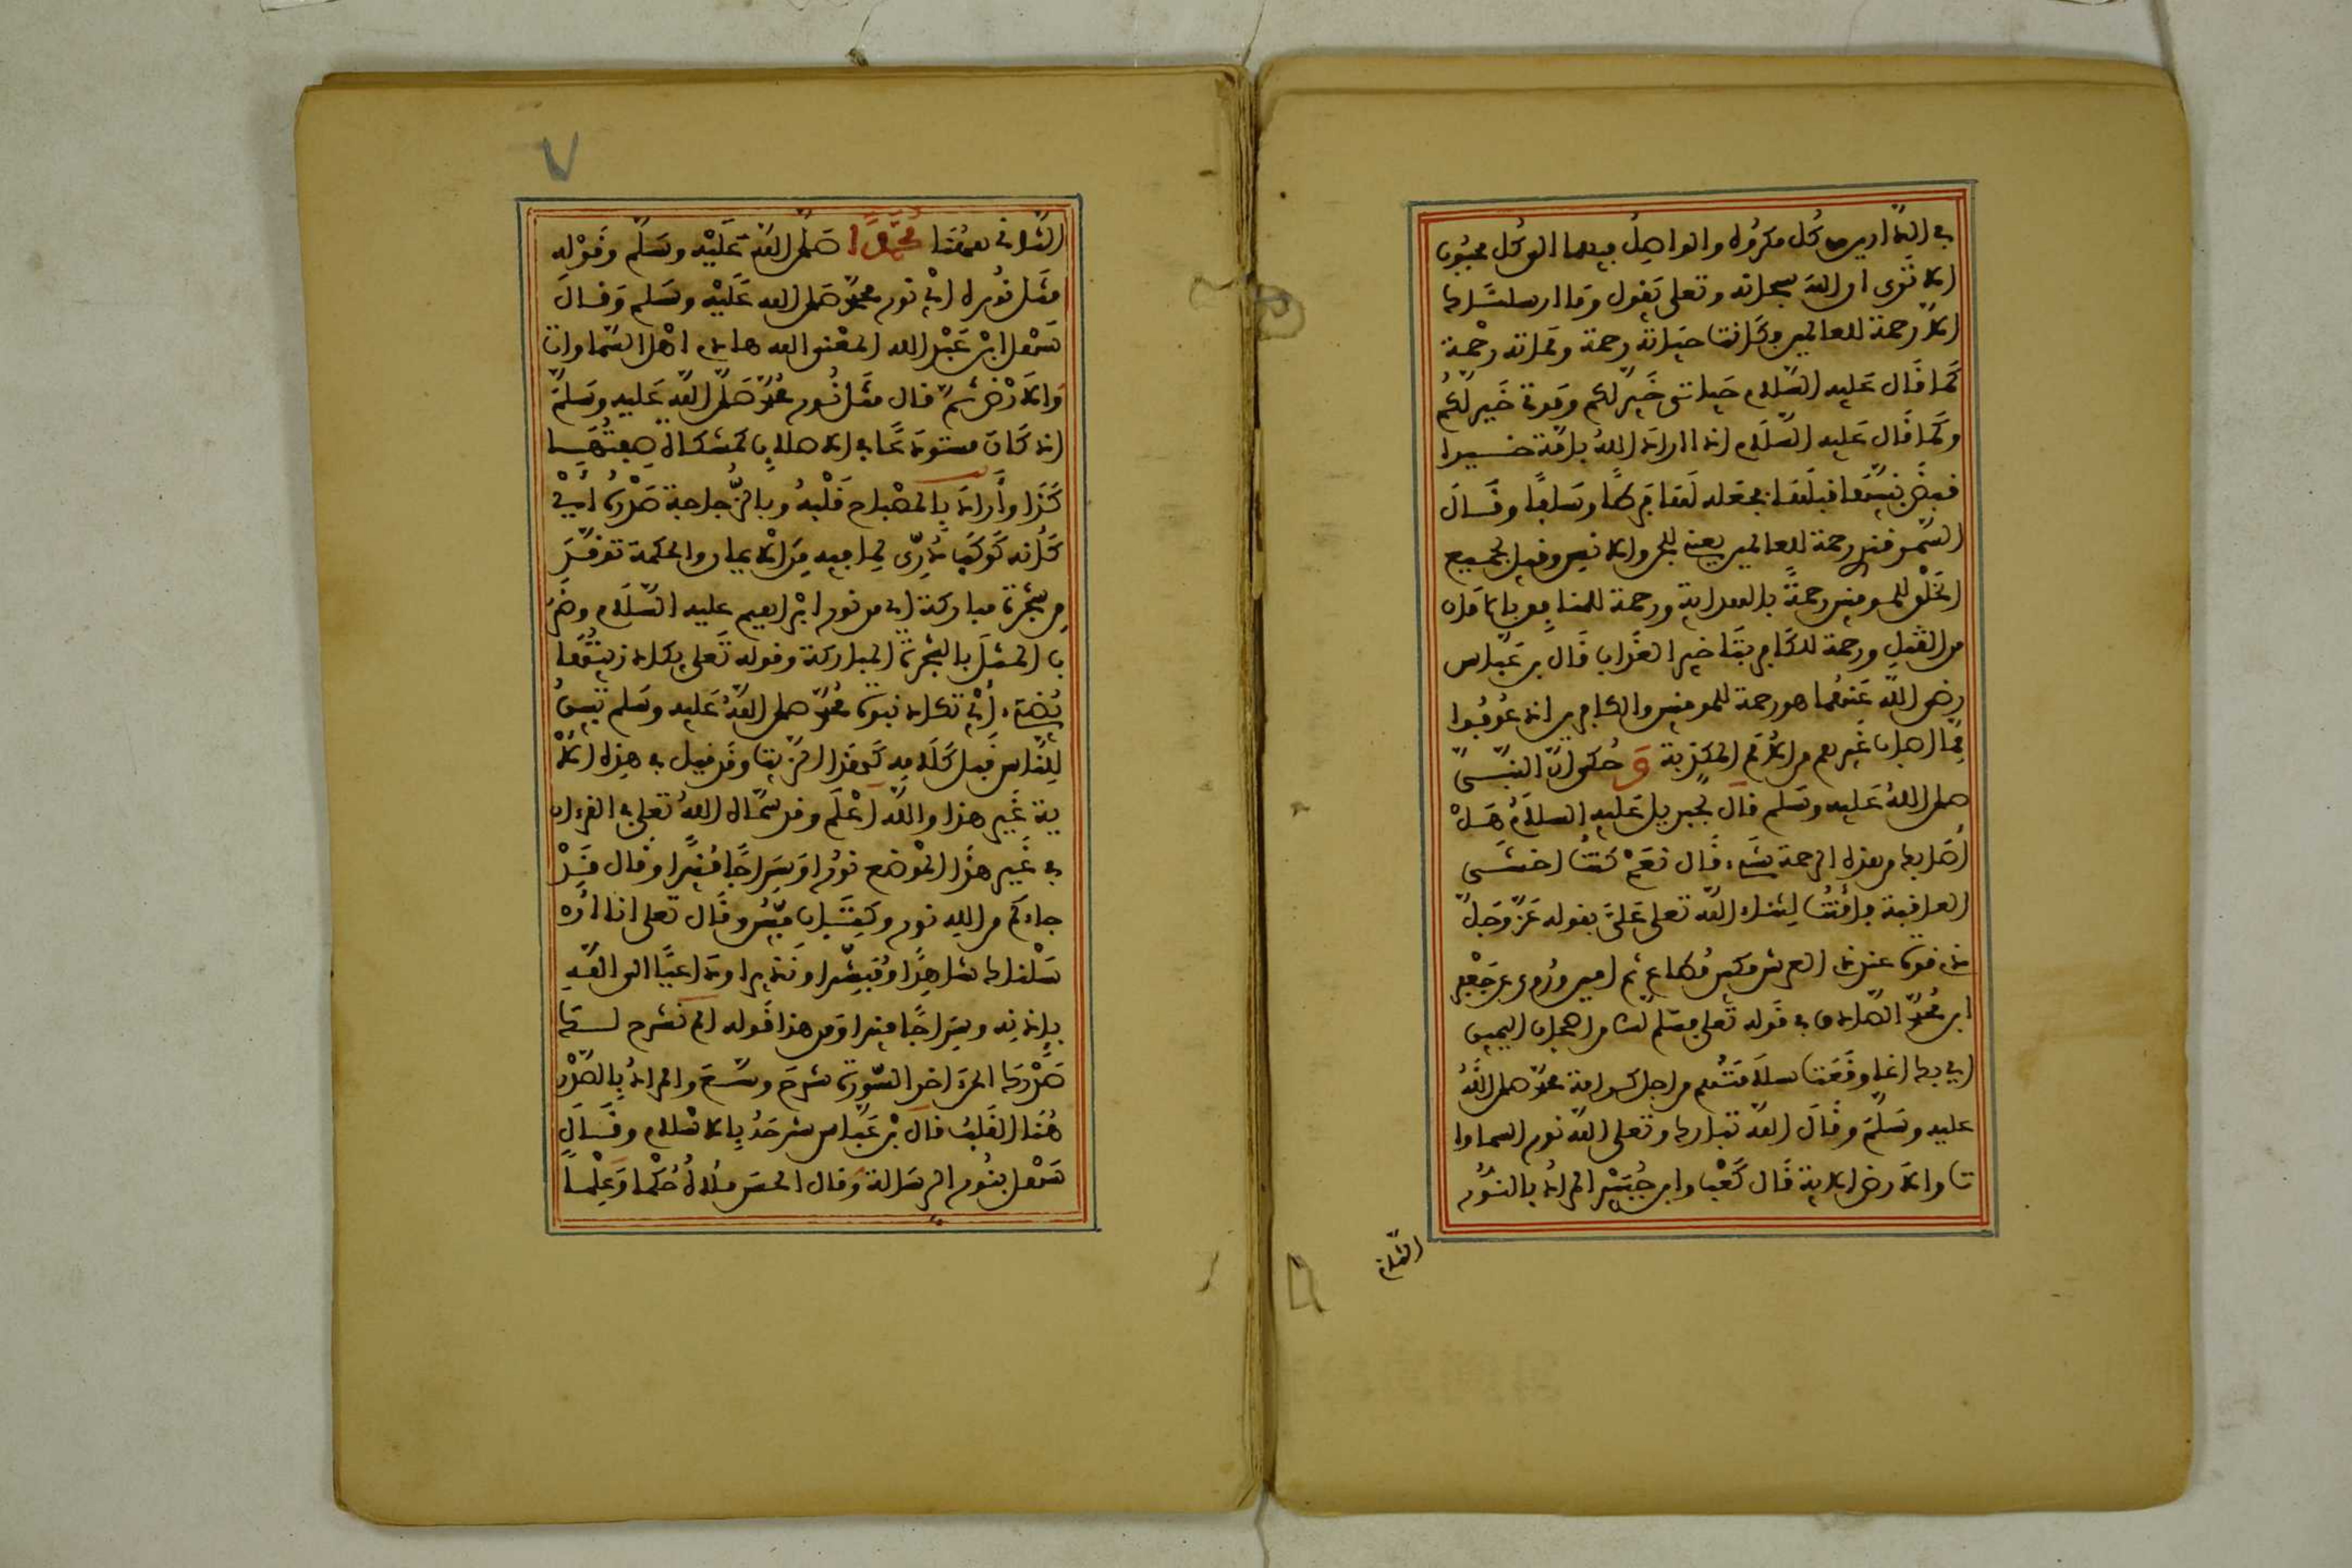 في الدارين من كل مكروه والواصل فيهما الى كل محبوب
الا ترى ان الله سبحانه وتعلى يقول وما ارسلناك
الا رحمة للعالمين فكانت حياته رحمة ومماته رحمة
كما قال عليه السلام حياتي خير لكم وموتي خير لكم
وكما قال عليه السلام اذا اراد الله بامة خيرا
قبض نبيها قبلها فجعله لها فرطا وسلفا وقال
السمرقندي رحمة للعالمين يعني للجن والانس وقيل لجميع
الخلق للمومنين رحمة بالهداية ورحمة للمنافق بالامان
من القتل ورحمة للكافر بتاخير العذاب قال بن عباس
رضي الله عنهما هو رحمة للمومنين والكافرين اذ عوفوا
مما اصاب غيرهم من الامم المكذبة وحكي ان النبي
صلى الله عليه وسلم قال لجبريل عليه السلام هل
اصابك من هذه الرحمة شيء قال نعم كنت اخشى
العاقبة فامنت لثناء الله تعلى علي بقوله عز وجل
ذي قوة عند ذي العرش مكين مطاع ثم امين وروي عن جعفر
ابن محمد الصادق في قوله تعلى فسلام لك من اصحاب اليمين
اي بك انما وقعت سلامتهم من اجل كرامة محمد صلى الله
عليه وسلم وقال الله تبارك وتعلى الله نور السماوا
ت والارض الاية قال كعب وابن جبير المراد بالنور
الثاني
٧
الثاني هنا محمدا صلى الله عليه وسلم وقوله
مثل نوره اي نور محمد صلى الله عليه وسلم وقال
سهل ابن عبد الله المعنى الله هادي اهل السماوات
والارض ثم قال مثل نور محمد صلى الله عليه وسلم
اذ كان مستودعا في الاصلاب كمشكاة صفتها
كذا واراد بالمصباح قلبه وبالزجاجة صدره أي
كأنه كوكب دري لما فيه من الايمان والحكمة توقد
من شجرة مباركة اي من نور ابراهيم عليه السلام وضر
ب المثل بالشجرة المباركة وقوله تعلى يكاد زيتها
يضيء أي تكاد نبوة محمد صلى الله عليه وسلم تبين
للناس قبل كلامه كهذا الزيت وقد قيل في هذه الا
ية غير هذا والله اعلم وقد سماه الله تعلى في القرءان
في غير هذا الموضع نورا وسراجا منيرا وقال قد
جاءكم من الله نور وكتاب مبين وقال تعلى انا أر
سلناك شاهدا ومبشرا ونذيرا وداعيا الى الله
بإذنه وسراجا منيرا ومن هذا قوله الم نشرح لك
صدرك الى ءاخر السورة شرح وسع والمراد بالصدر
هنا القلب قال بن عباس شرحه بالاسلام وقال
سهل بنور الرسالة وقال الحسن ملاه حكما وعلما